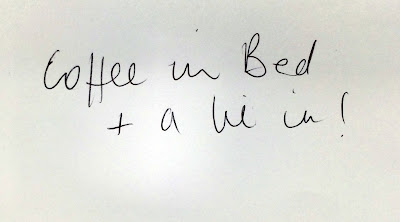 Coffee in Bed
+ a lie in!